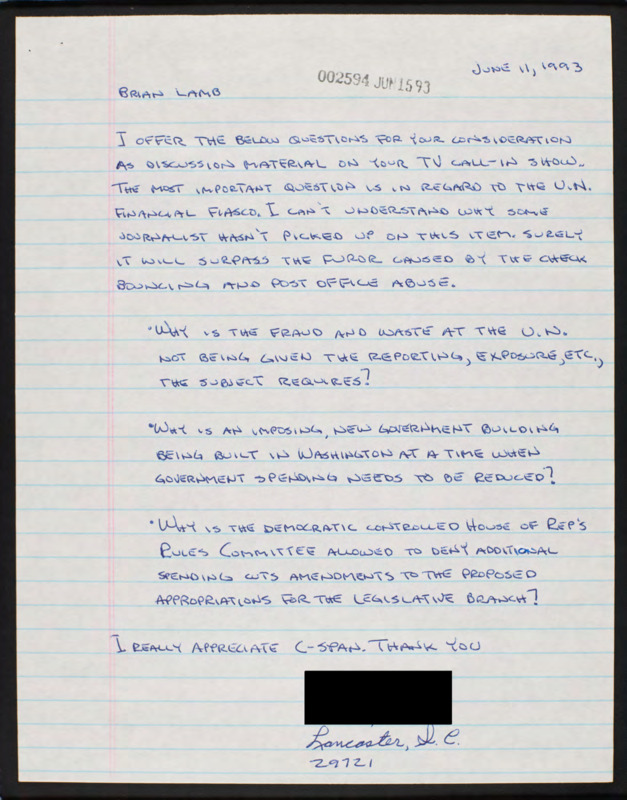 JUNE 11, 1993
002594 JUN 15 93
BRIAN LAMB
I OFFER THE BELOW QUESTIONS FOR YOUR CONSIDERATION
AS DISCUSSION MATERIAL ON YOUR TV CALL-IN SHOW.
THE MOST IMPORTANT QUESTION IS IN REGARD TO THE U.N.
FINANCIAL FIASCO. I CAN'T UNDERSTAND WHY SOME
JOURNALIST HASN'T PICKED UP ON THIS ITEM. SURELY
IT WILL SURPASS THE FUROR CAUSED BY THE CHECK
BOUNCING AND POST OFFICE ABUSE.
• WHY IS THE FRAUD AND WASTE AT THE U.N.
NOT BEING GIVEN THE REPORTING, EXPOSURE, ETC.,
THE SUBJECT REQUIRES?
• WHY IS AN IMPOSING, NEW GOVERNMENT BUILDING
BEING BUILT IN WASHINGTON AT A TIME WHEN
GOVERNMENT SPENDING NEEDS TO BE REDUCED?
• WHY IS THE DEMOCRATIC CONTROLLED HOUSE OF REP'S
RULES COMMITTEE ALLOWED TO DENY ADDITIONAL
SPENDING CUTS AMENDMENTS TO THE PROPOSED
APPROPRIATIONS FOR THE LEGISLATIVE BRANCH?
I REALLY APPRECIATE C-SPAN. THANK YOU
Lancaster, S.C.
29721